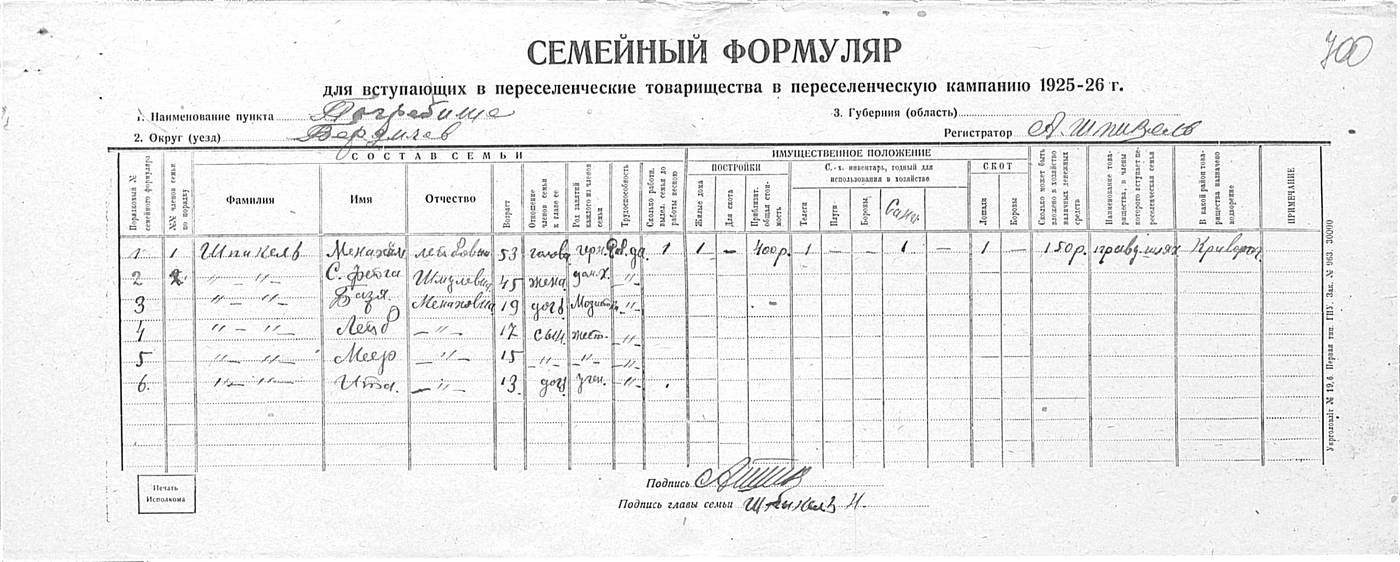 700
СЕМЕЙНЫЙ ФОРМУЛЯР
для вступающих в переселенческие товарищества в переселенческую кампанию 1925-26 г.
1. Наименование пункта Погребище 3. Губерния (область)
2. Округ (уезд) Бердичев Регистратор А. Шпивель
СОСТАВ СЕМЬИ ИМУЩЕСТВЕННОЕ ПОЛОЖЕНИЕ
Порядковый № семейного формуляра
№№ членов семьи по порядку
Фамилия
Имя
Отчество
Возраст
Отношение членов семьи к главе ее
Род занятий каждого из членов семьи
Трудоспособность
Сколько работн. выдел. семья до работы весною
ПОСТРОЙКИ
Жилые дома
Для скота
Приблизит. общая стоимость
С.-х. инвентарь, годный для использования в хозяйстве
Телеги
Плуги
Бороны
Сани
СКОТ
Лошади
Коровы
Сколько может быть вложено в хозяйство наличных денежных средств
Наименование товарищества, в члены которого вступает переселенческая семья
В какой район товарищества назначено водворение
ПРИМЕЧАНИЕ
1 1 Шпикель 53 голова 1 1 – 400р. 1 – – 1 – 1 – 150р.
2 2 " – " – С. Фейга Шмулевна 45 жена "
3 " – " – Базя Менаховна 19 дочь "
4 " – " – Лейб – " – 17 сын "
5 " – " – Меер – " – 15 " "
6. " – " – Ита – " – 13. дочь учен. "
Печать Исполкома
Подпись
Подпись главы семьи Шпикель
Укрголовліт № 19,6 Первая тип. ГПУ. Зак. № 963 30000